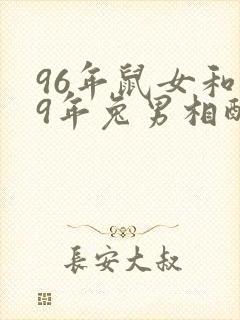 96年鼠女和
9年兔男相配
長安大叔